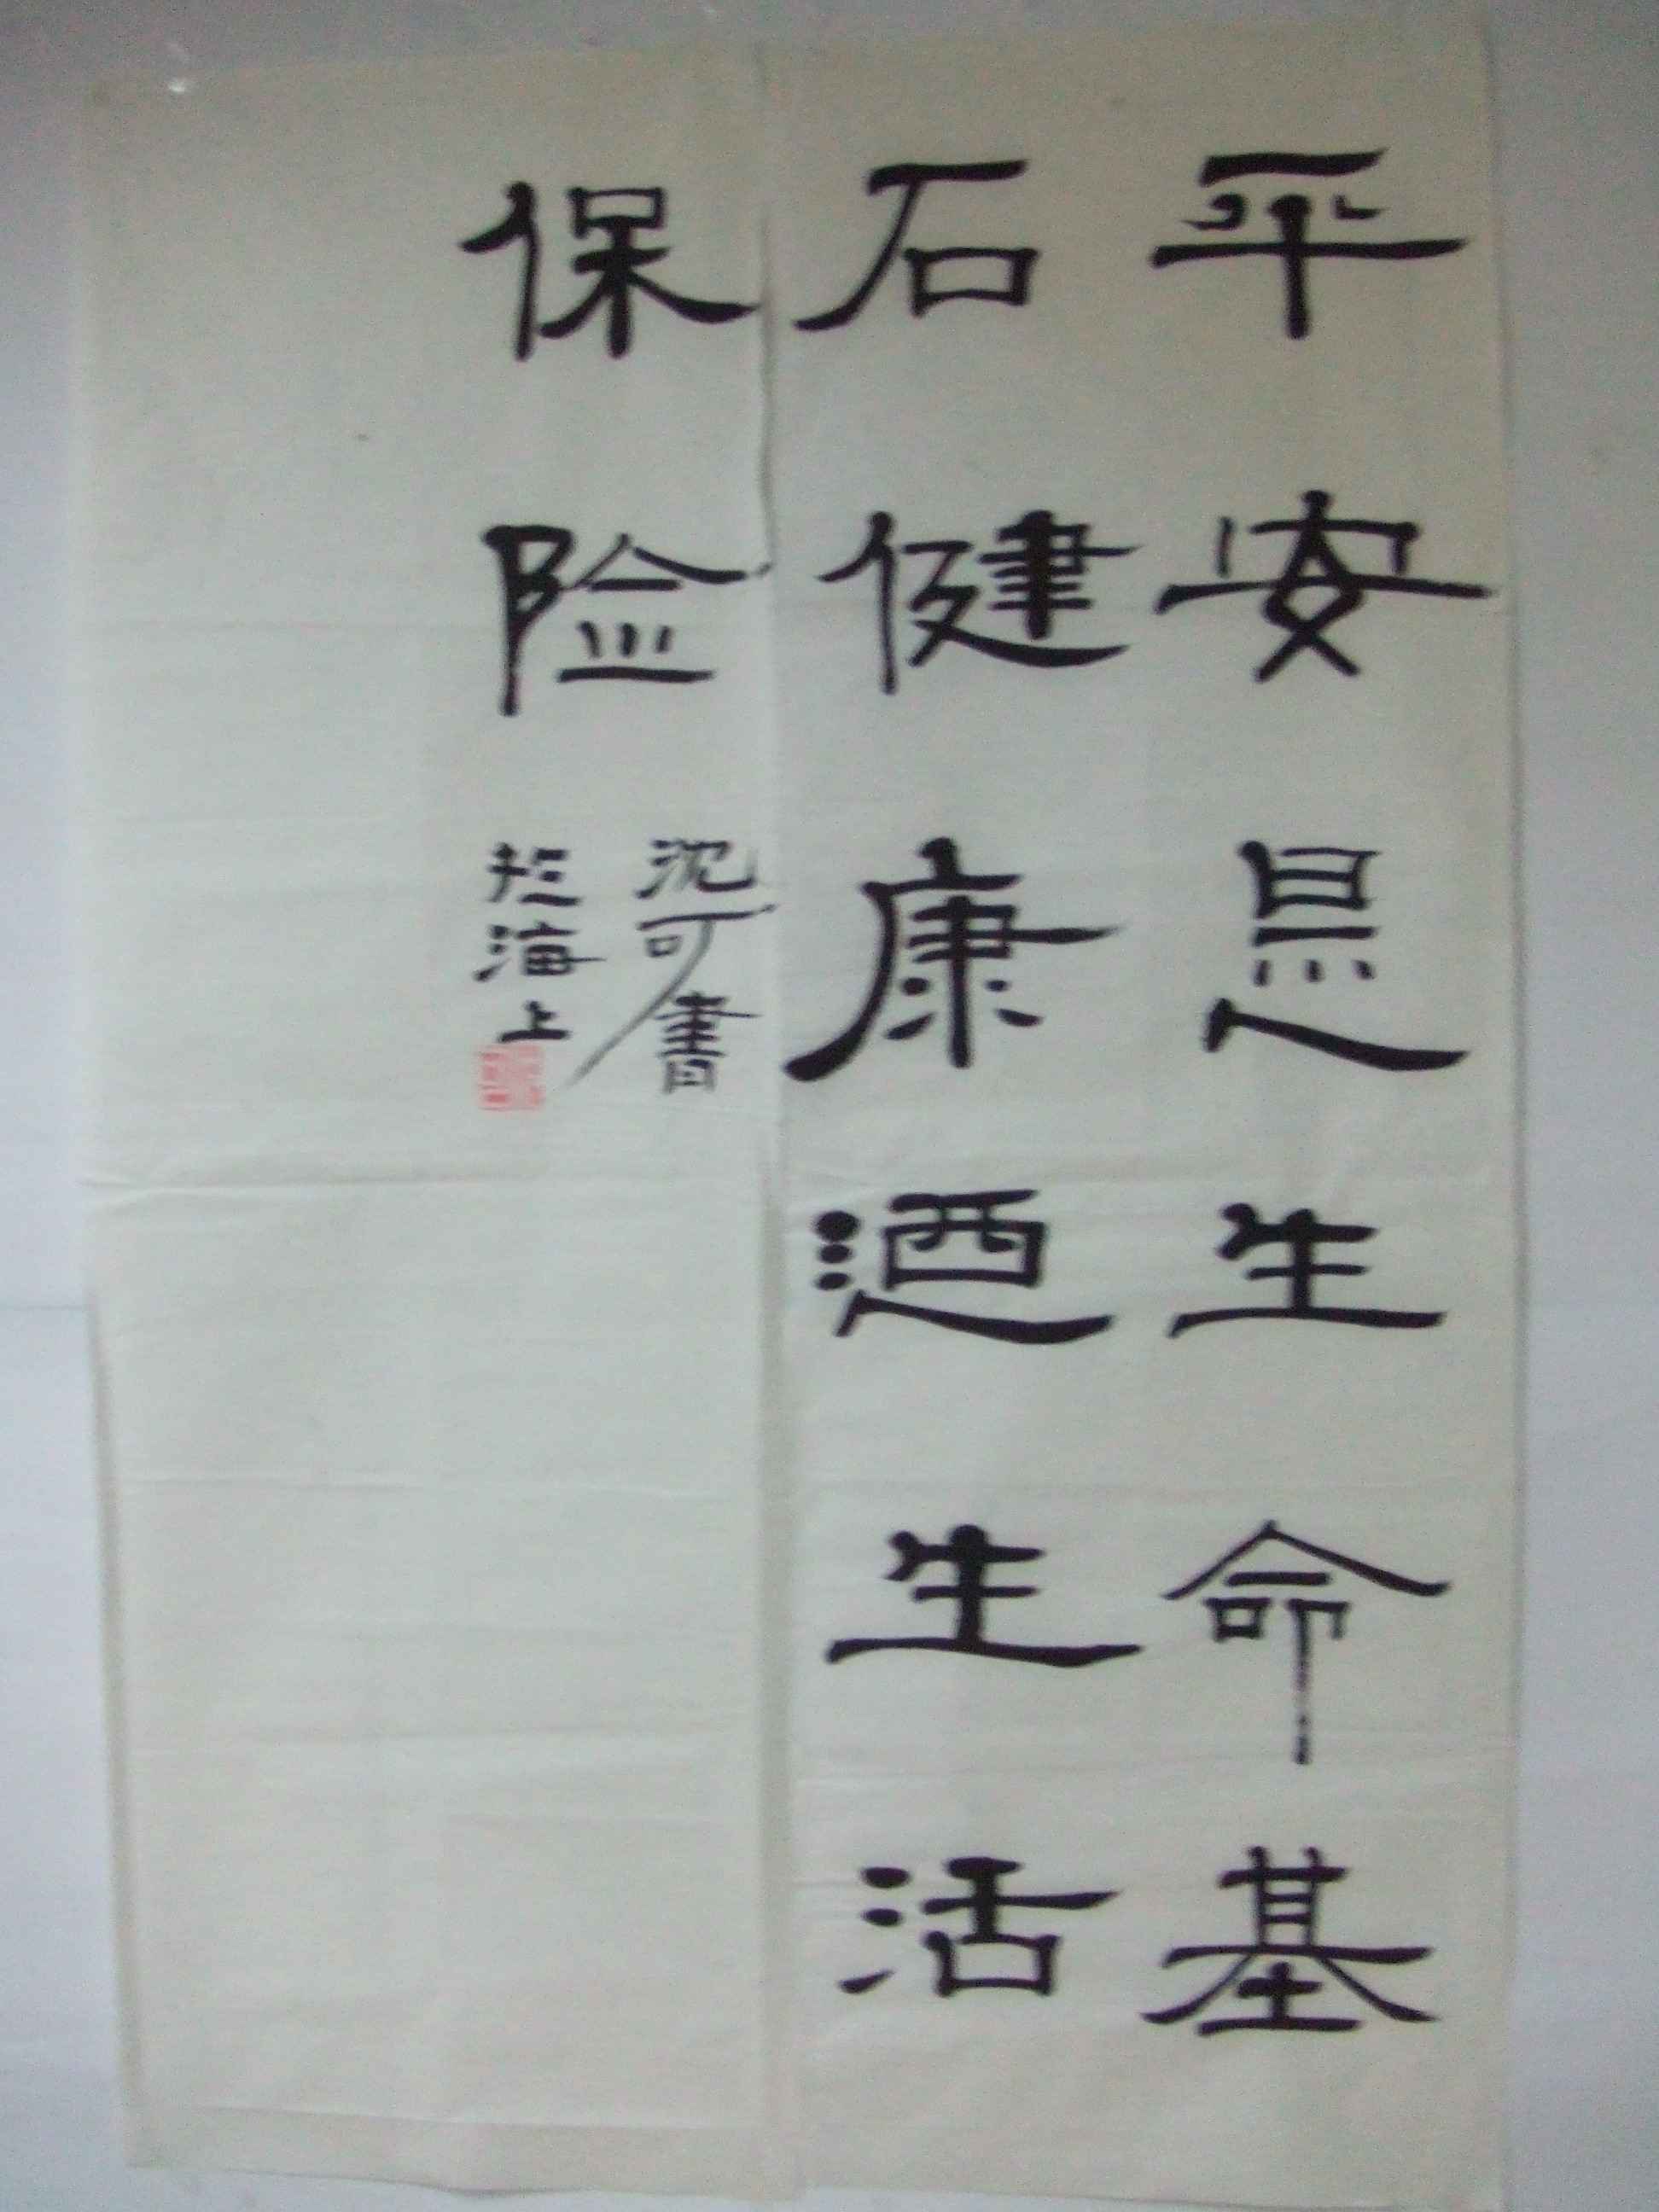 平安是生命基
石健康迺生活
保险
沈可書
於海上